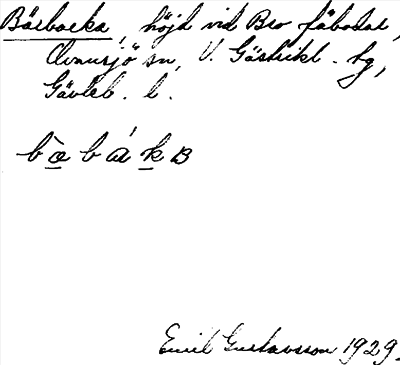 Bärbacka, höjd vid Bro fäbodar,
Ovansjö sn, V. Gästrikl. tg,
Gävleb. l.
bæbákB
Emil Gustavsson 1929.